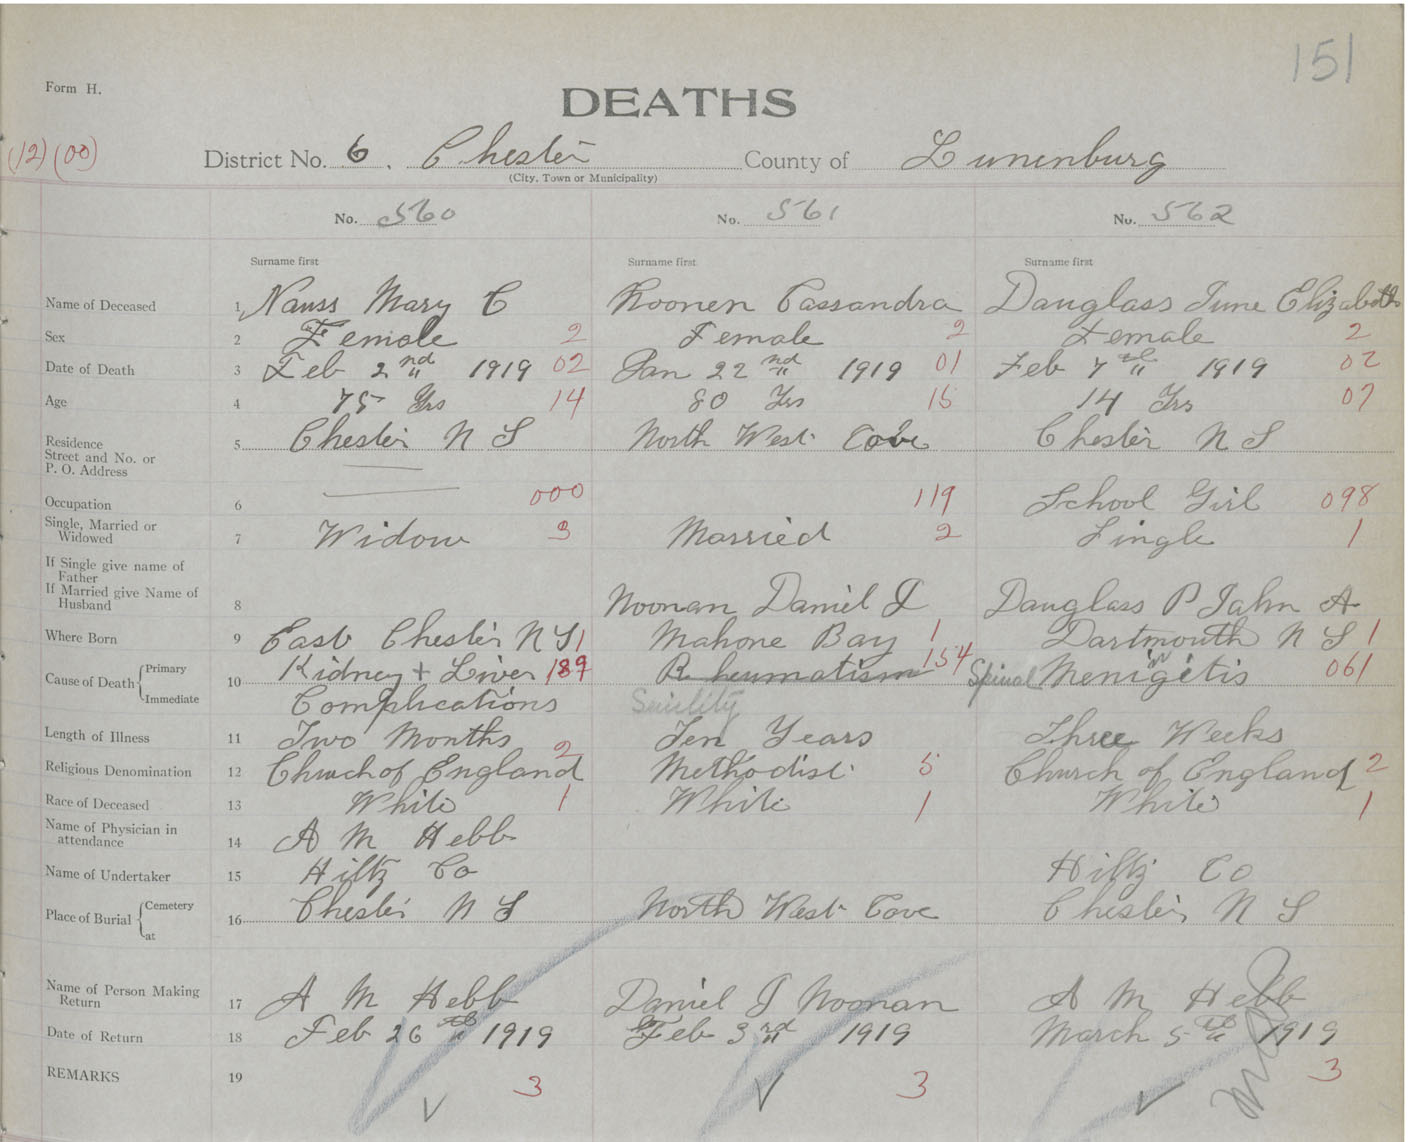 151
Form H.
DEATHS
(12) (00) District No. 6. Chester County of Lunenburg
(City, Town or Municipality)
No. 560 No. 561 No. 562
Surname first Surname first Surname first
Name of Deceased 1 Nauss Mary C Noonen Cassandra Dauglass June Elizabeth
Sex 2 Female 2 Female 2 Female 2
Date of Death 3 Feb 2nd 1919 02 Jan 22nd 1919 01 Feb 7th 1919 02
Age 4 75 Yrs 14 80 Yrs 15 14 Yrs 07
Residence
Street and No. or
P. O. Address 5 Chester N S North West Cove Chester N S
Occupation 6 000 119 School Girl 098
Single, Married or
Widowed 7 Widow 3 Married 2 Single 1
If Single give name of
Father
If Married give Name of
Husband 8 Noonan Daniel J Dauglass P Jahn A
Where Born 9 East Chester N S 1 Mahone Bay 1 Dartmouth N S 1
Cause of Death { Primary 10 Kidney + Liver 189 Rheumatism 154 Spinal Menigetis 061
Immediate Complications Senility
Length of Illness 11 Two Months Ten Years Three Weeks
Religious Denomination 12 Church of England 2 Methodist 5 Church of England 2
Race of Deceased 13 White 1 White 1 White 1
Name of Physician in
attendance 14 A M Hebb
Name of Undertaker 15 Hiltz Co Hiltz Co
Place of Burial { Cemetery
at 16 Chester N S North West Cove Chester N S
Name of Person Making
Return 17 A M Hebb Daniel J Noonan A M Hebb
Date of Return 18 Feb 26th 1919 Feb 3rd 1919 March 5th 1919
REMARKS 19 3 3 3